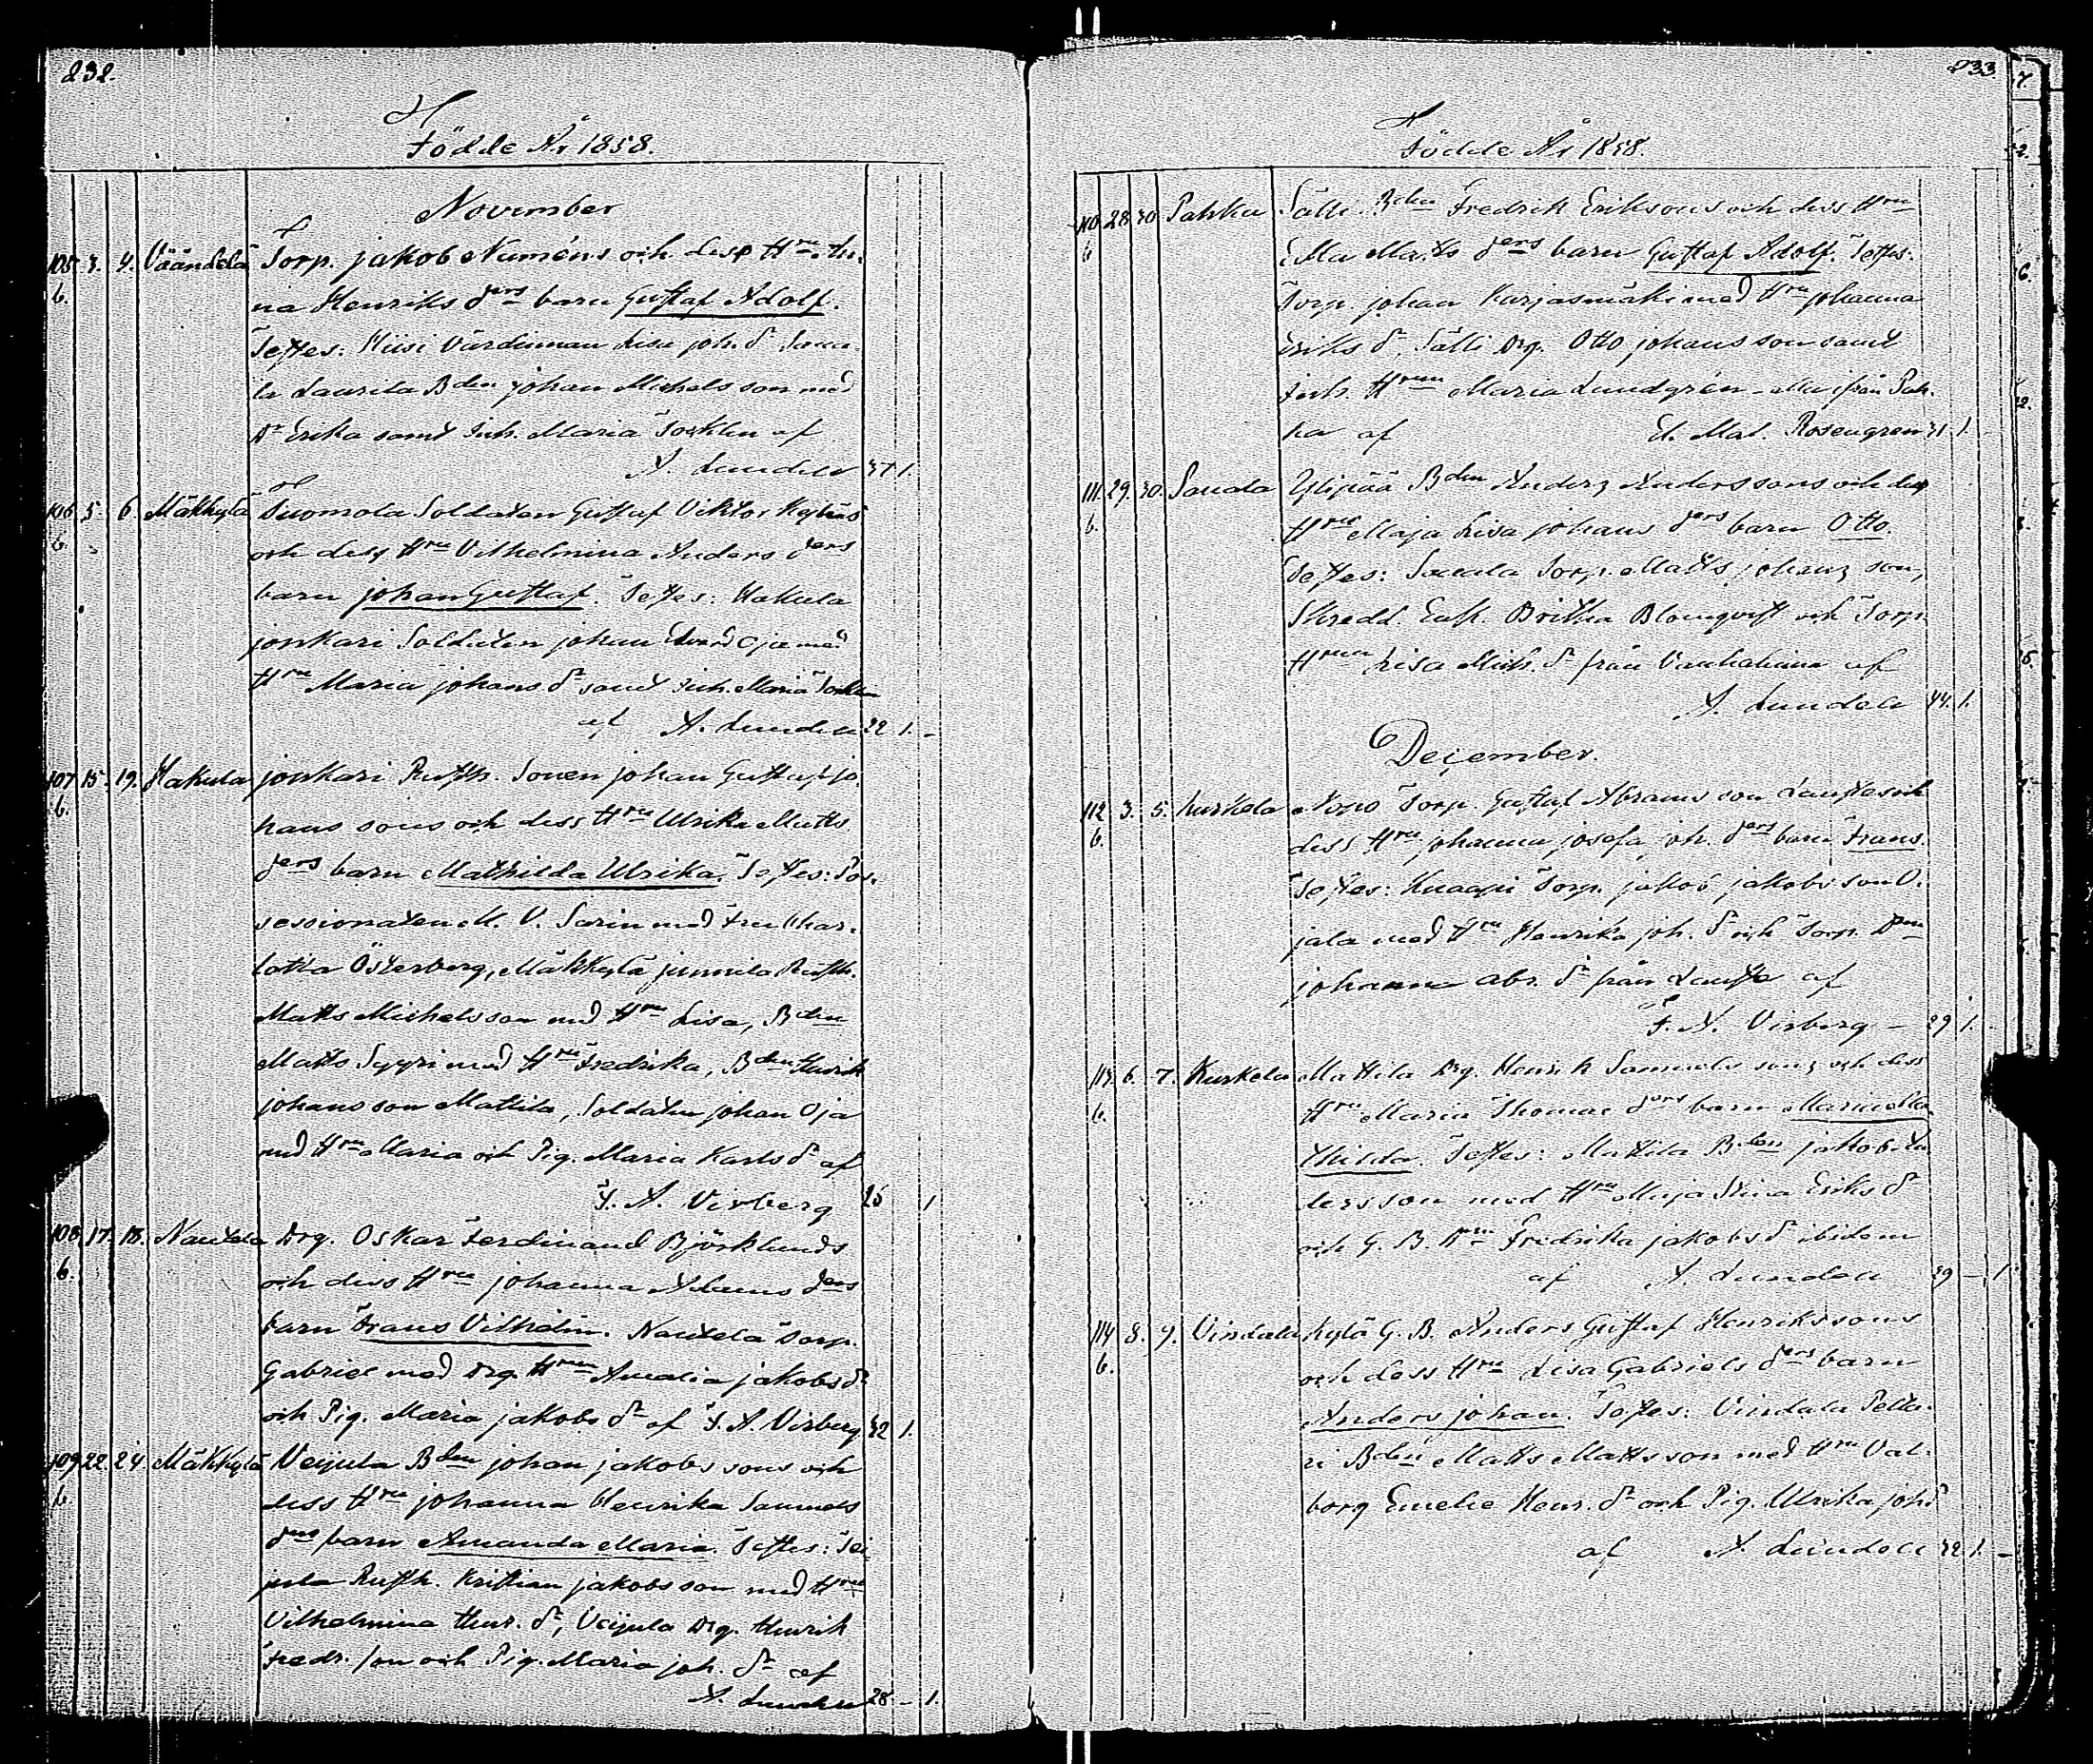 232.
Födde År 1858.
November
105. 3. 4. Väändelä Torp. Jakob Numéns och dess Hru An-
b. na Henriks drs barn Gustaf Adolf.
Testes: Hiisi Värdinnan Lisa Joh. dr Saua-
la Laurila Bden Johan Michels son med
Dr Erika samt Inh. Maria Torklin af
A. Lundell 37. 1.
106 5. 6. Mäkkylä Tuomola Soldaten Gustaf Viktor
b. och dess Hru Vilhelmina Anders drs
barn Johan Gustaf. Testes: Hakula
Jonkari Soldaten Johan Edvard Oja med
Hru Maria Johans dr samt Inh. Maria
af A. Lundell 22 1. -
107 15. 19. Hakula Jonkari Rusth. Sonen Johan Gustaf Jo-
b. hans sons och dess Hru Ulrika Matts
drs barn Mathilda Ulrika. Testes: Pos-
sessionaten M. V. Sarin med Fru Char-
lotta Österberg, Mäkkylä Junnila Rusth.
Matts Michelsson med Hru Lisa, Bden
Matts Syyri med Hru Fredrika, Bden Henrik
Johans son Mattila, Soldaten Johan Oja
med Hru Maria och Pig. Maria Karls dr af
F. A. Virberg 25 1
108. 17. 18. Nautela Drg. Oskar Ferdinand Björklunds
b. och dess Hru Johanna Adams drs
barn Frans Vilhelm. Nautela Torp.
Gabriel med Drg. Hrun Amalia Jakobs dr
och Pig. Maria Jakobs dr af F. A. Virberg 32 1.
109 22. 24. Mäkkylä Veijula Bden Johan Jakobs sons och
b. dess Hru Johanna Henrika Samuels
drs barn Amanda Maria. Testes: Vei-
jula Rusth. Kristian Jakobs son med Hru
Vilhelmina Henr. dr, Veijula Drg. Henrik
Fredr. son och Pig. Maria Joh. dr af
A. Lundell 28 - 1.
233
Födde År 1858.
110 28 30 Pahka Sälli Bden Fredrik Eriksons och dess Hru
b. Ulla Matts drs barn Gustaf Adolf. Testes:
Torp. Johan Karjasmäki med Hru Johanna
Eriks dr, Sälli Drg. Otto Johans son samt
Inh. Hrun Maria Lundgrén - alla ifrån Pah-
ka af El. Mat. Rosengren 31. 1.
111. 29. 30. Sauala Ylipää Bden Anders Anders sons och dess
b. Hru Maja Lisa Johans drs barn Otto.
Testes: Sauala Torp. Matts Johans son,
Skredd. Enk. Britha Blomqvist och Torp.
Hrun Lisa Mich. dr från Vanhalinna af
A. Lundell 44. 1.
December.
112 3. 5. Kurkela Nopo Torp. Gustaf Abrams son Lauste och
b. dess Hru Johanna Josefa Joh. drs barn Frans.
Testes: Knaapi Torp. Jakob Jakobs son O-
jala med Hru Henrika Joh. dr och Torp. Drn
Johanna Abr. dr från Lauste af
F. A. Virberg - 29 1. -
113. 6. 7. Kurkela Mattila Drg. Henrik Samuels sons och dess
b. Hru Maria Thomae drs barn Maria Ma-
thilda. Testes: Mattila Bden Jakob An-
ders son med Hru Maja Stina Eriks dr
och G. B. Drn Fredrika Jakobs dr ibidem
af A. Lundell 39 - 1.
114 8. 9. Vindala Kylä G. B. Anders Gustaf Henriks sons
b. och dess Hru Lisa Gabriels drs barn
Anders Johan. Testes: Vindala
Bden Matts Matts son med Hru Val-
borg Emelie Henr. dr och Pig. Ulrika Joh. dr
af A. Lundell 32. 1. -